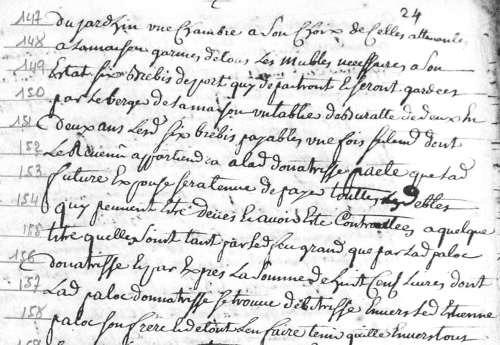 24
147 du jardhin une chambre a son choix de celles attenante
148 a sa maison garnies de tous les mubles necessaires a son
149 Estat six brebis de port quy depaitront et seront gardees
150 par le berge de sa maison valable de duratte de deux
151 deux ans lesd six brebis payables une fois sulem dont
152 le Revenu appartiendra a lad donatrisse pacte que sad
153 future Expouse sera tenue de paye touttes les debtes
154 quy peuvent etre deues et avoir este Contractees a quelque
155 titre quelles soint tant par led feu grand que par lad paloc
156 donatrisse et par Expres la somme de huit Cens livres dont
157 Lad paloc donnatrisse se trouve debitrisse Envers led Etienne
158 paloc son frere et de tout len faire tenir quitte Envers tous